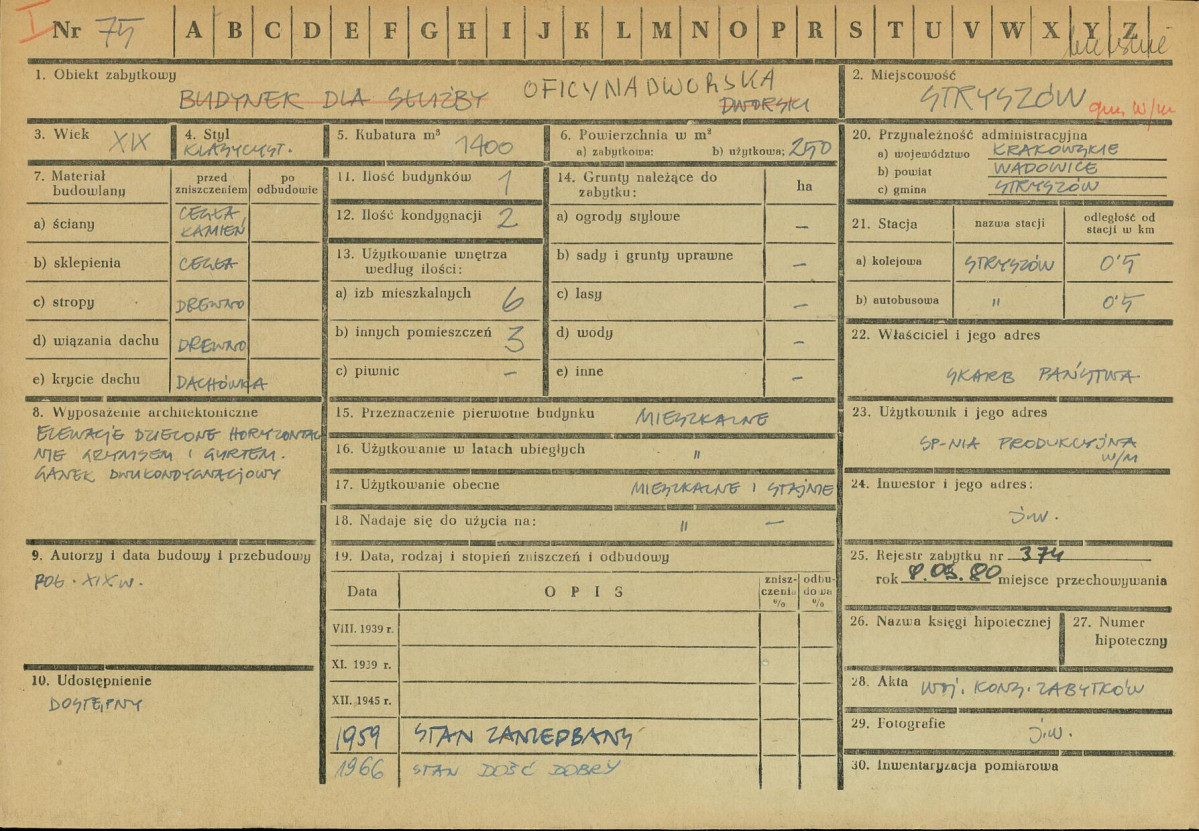 I Nr 75 A B C D E F G H I J K L M N O P R S T U V W X Y Z
1. Obiekt zabytkowy
BUDYNEK DLA SŁUŻBY OFICYNA DWORSKA
DWORSKI
2. Miejscowość
STRYSZÓW
3. Wiek XIX
4. Styl
KLASYCYST.
5. Kubatura m³
1400
6. Powierzchnia w m²
a) zabytkowa: b) użytkowa: 250
7. Materiał budowlany
przed zniszczeniem
po odbudowie
a) ściany CEGŁA, KAMIEŃ
b) sklepienia CEGŁA
c) stropy DREWNO
d) wiązania dachu DREWNO
e) krycie dachu DACHÓWKA
8. Wyposażenie architektoniczne
ELEWACJE DZIELONE HORYZONTAL
NIE GZYMSEM I GURTEM.
GANEK DWUKONDYGNACJOWY
9. Autorzy i data budowy i przebudowy
POŁ. XIX W.
10. Udostępnienie
DOSTĘPNY
11. Ilość budynków 1
12. Ilość kondygnacji 2
13. Użytkowanie wnętrza
według ilości:
a) izb mieszkalnych 6
b) innych pomieszczeń 3
c) piwnic –
14. Grunty należące do
zabytku: ha
a) ogrody stylowe –
b) sady i grunty uprawne –
c) lasy –
d) wody –
e) inne –
15. Przeznaczenie pierwotne budynku MIESZKALNE
16. Użytkowanie w latach ubiegłych "
17. Użytkowanie obecne MIESZKALNE I STAJNIE
18. Nadaje się do użycia na: " –
19. Data, rodzaj i stopień zniszczeń i odbudowy
Data OPIS znisz-czenia % odbu-dowa %
VIII. 1939 r.
XI. 1939 r.
XII. 1945 r.
1959 STAN ZANIEDBANY
1966 STAN DOŚĆ DOBRY
20. Przynależność administracyjna
a) województwo KRAKOWSKIE
b) powiat WADOWICE
c) gmina STRYSZÓW
21. Stacja nazwa stacji odległość od stacji w km
a) kolejowa STRYSZÓW 0'5
b) autobusowa " 0'5
22. Właściciel i jego adres
SKARB PAŃSTWA
23. Użytkownik i jego adres
SP-NIA PRODUKCYJNA
W/M
24. Inwestor i jego adres:
j.w.
25. Rejestr zabytku nr 374
rok 8.05.80 miejsce przechowywania
26. Nazwa księgi hipotecznej
27. Numer
hipoteczny
28. Akta WOJ. KONS. ZABYTKÓW
29. Fotografie
j.w.
30. Inwentaryzacja pomiarowa